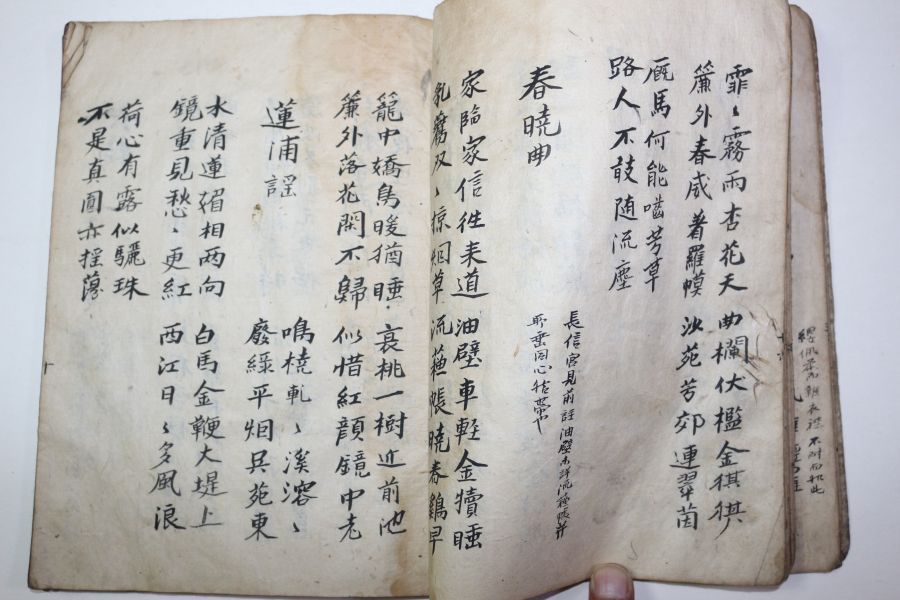 霏〻霧雨杏花天 曲欄伏檻金猉
簾外春威著羅幙 沙苑芳郊連翠茵
厩馬何能嚙芳草
路人不敢随流塵
長信宮見前註油壁未詳流蘓帳
垂同心結帶也
春曉曲
家臨家信徃耒道 油壁車軽金犢睡
乳鷰双〻掠烟草 流蘓帳曉春鷄早
籠中嬌鳥暖猶睡 衰桃一樹近前池
簾外落花閑不歸 似惜紅顔鏡中老
蓮浦謡
鳴橈軋〻溪溶〻
廢緑平烟吴苑東
水清蓮媚相两向 白馬金鞭大堤上
鏡重見愁〻更紅 西江日〻多風浪
荷心有露似驪珠
不是真圓亦揺蕩